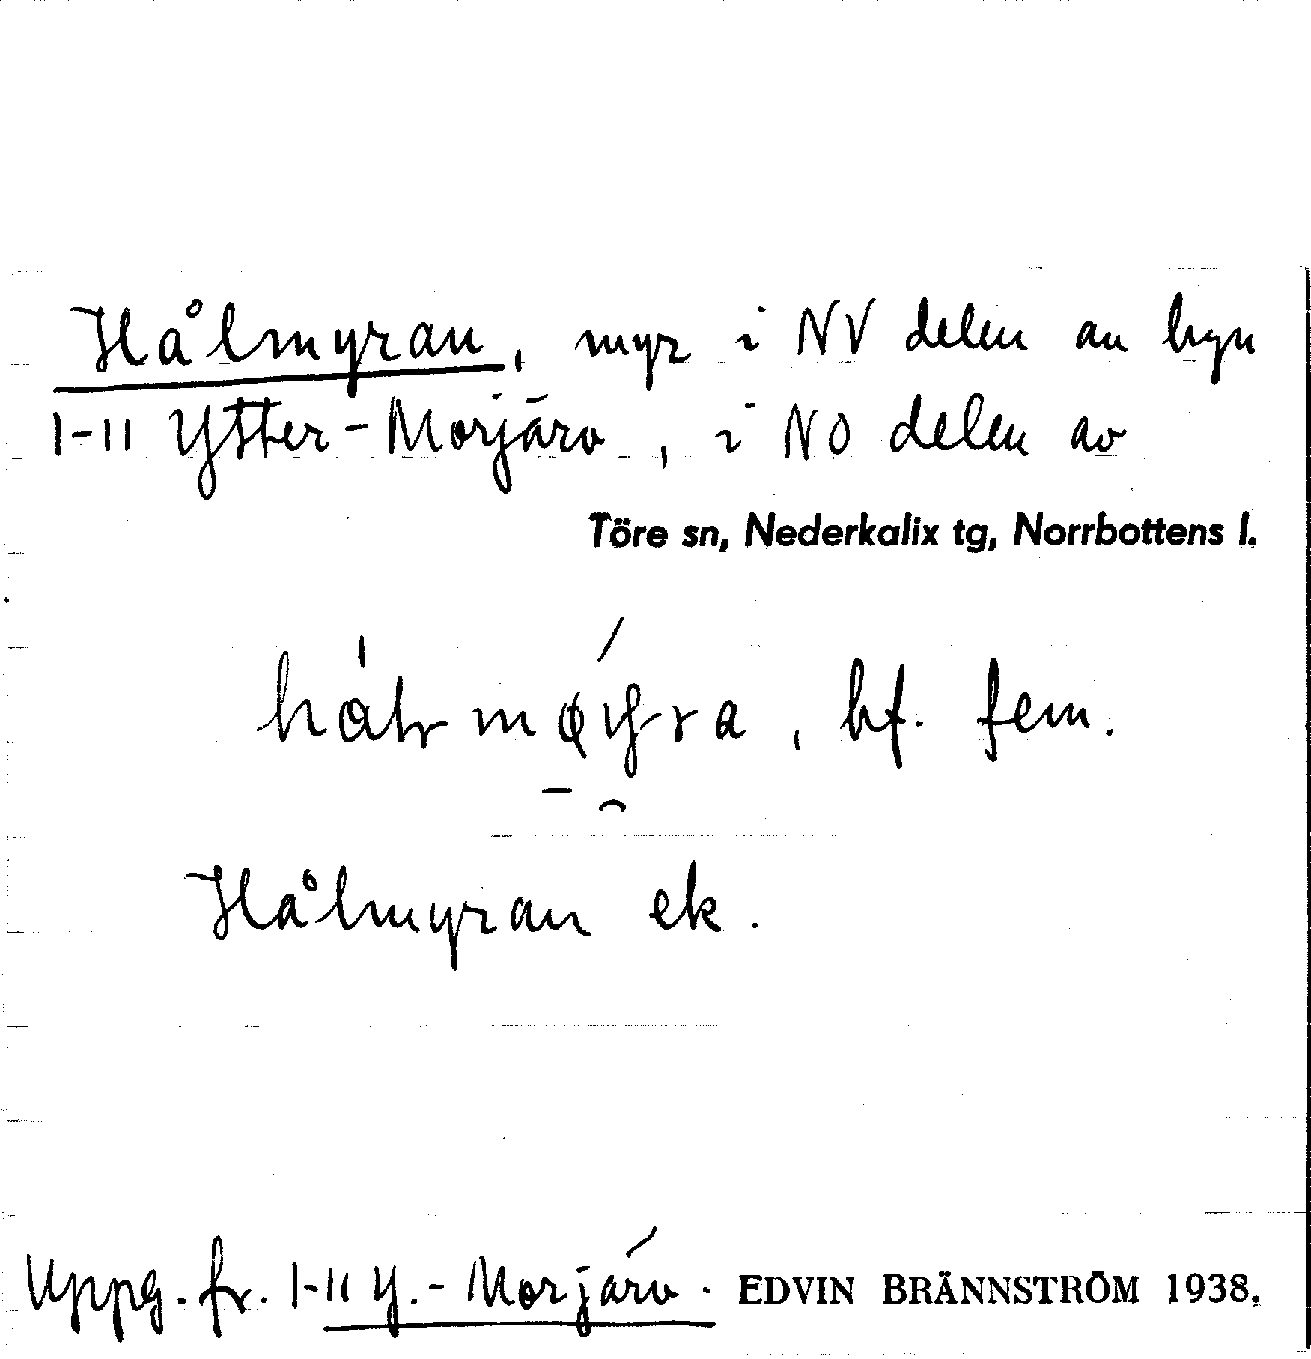 Hålmyran, myr i NV delen av byn
1-11 Ytter-Morjärv, i NO delen av
Töre sn, Nederkalix tg, Norrbottens l.
bf. fem.
Hålmyran ek.
Uppg. fr. 1-11 Y.-Morjärv. EDVIN BRÄNNSTRÖM 1938.